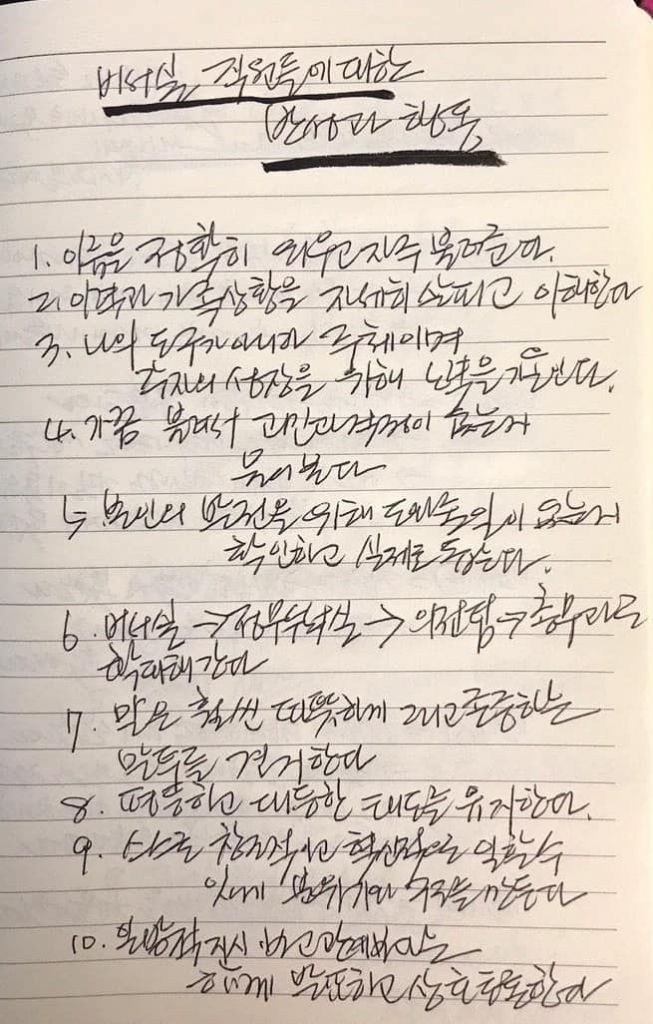 비서실 직원들에 대한
반성과 행동
1. 이름을 정확히 외우고 자주 불러준다.
2. 이력과 가족상황을 자세히 살피고 이해한다
3. 나의 도구가 아니라 주체이며
각자의 성장을 위해 노력을 기울인다.
4. 가끔 불러서 고민과 걱정이 없는지
물어본다
5. 본인의 발전을 위해 도와줄 일이 없는지
확인하고 실제로 돕는다.
6. 비서실 → 정무부시장실 → 의전팀 → 총무과로
확대해간다
7. 말은 훨씬 따뜻하게 그리고 존중하는
말투를 견지한다
8. 평등하고 대등한 태도를 유지한다.
9. 스스로 창조적이고 혁신적으로 일할 수
있게 분위기와 구조를 만든다
10. 일방적 지시·보고 관계
함께 발표하고 상호 한다